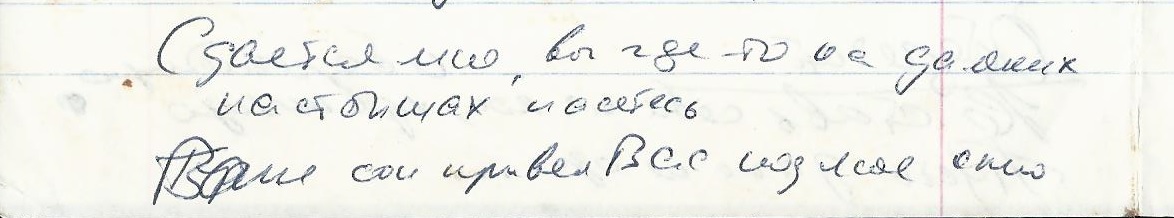 Сдается мне, вы где-то на дальних
пастбищах пасетесь
сон привел Вас под мое окно